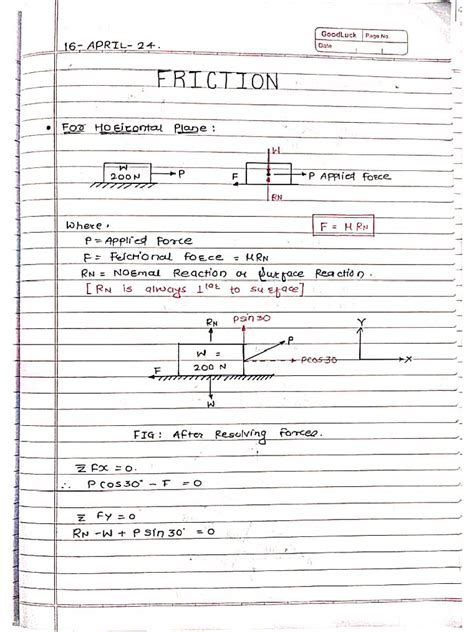 GoodLuck Page No.
Date
16-APRIL-24.
FRICTION
• FOR HORIZONTAL PLANE:
W
200N
P
W
F
P Applied Force
RN
Where,
F = μRN
P = Applied Force
F = Frictional Force = μRN
RN = Normal Reaction or Surface Reaction.
[RN is always ⊥lar to surface]
RN
Psin30
P
Y
W =
200 N
Pcos30
X
F
W
FIG: After Resolving forces.
Σ Fx = 0.
∴ P Cos30° - F = 0
Σ Fy = 0
RN - W + P Sin30° = 0